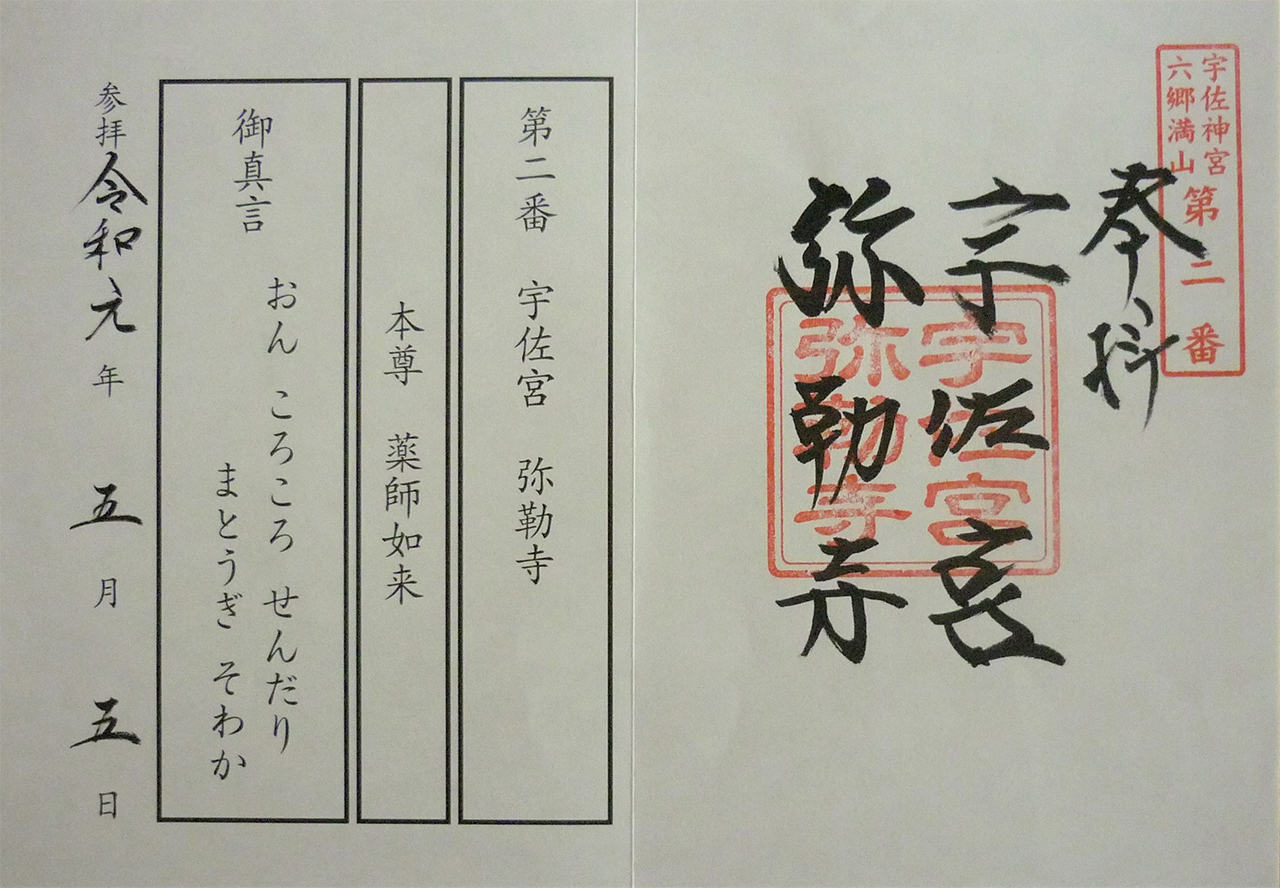 宇佐神宮
六郷満山
第二番
奉拝
宇佐宮
弥勒寺
宇佐宮
弥勒寺
第二番 宇佐宮 弥勒寺
本尊 薬師如来
御真言
おん ころころ せんだり
まとうぎ そわか
参拝 令和元年 五月 五日